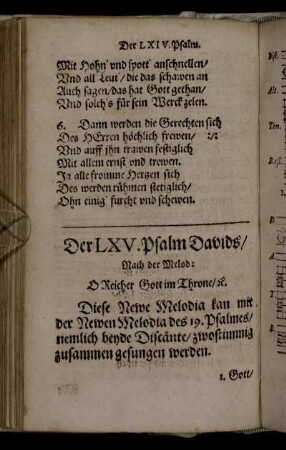 Der LXIV. Psalm.
Mit Hohn vnd spott anschnellen/
Vnd all Leut/ die das schawen an
Auch sagen/ das hat Gott gethan/
Vnd solch's für sein Werck zelen.
6. Dann werden die Gerechten sich
Des HErren höchlich frewen/ :/:
Vnd auff jhn trawen festiglich
Mit allem ernst vnd trewen.
Ja alle fromme Hertzen sich
Des werden rühmen stetiglich/
Ohn einig' furcht vnd schewen.
Der LXV. Psalm Davids/
Nach der Melod:
O Reicher Gott im Throne/ &c.
Diese Newe Melodia kan mit
der Newen Melodia des 19. Psalmes/
nemlich beyde Discánte/ zwostimmig
zusammen gesungen werden.
1. Gott/